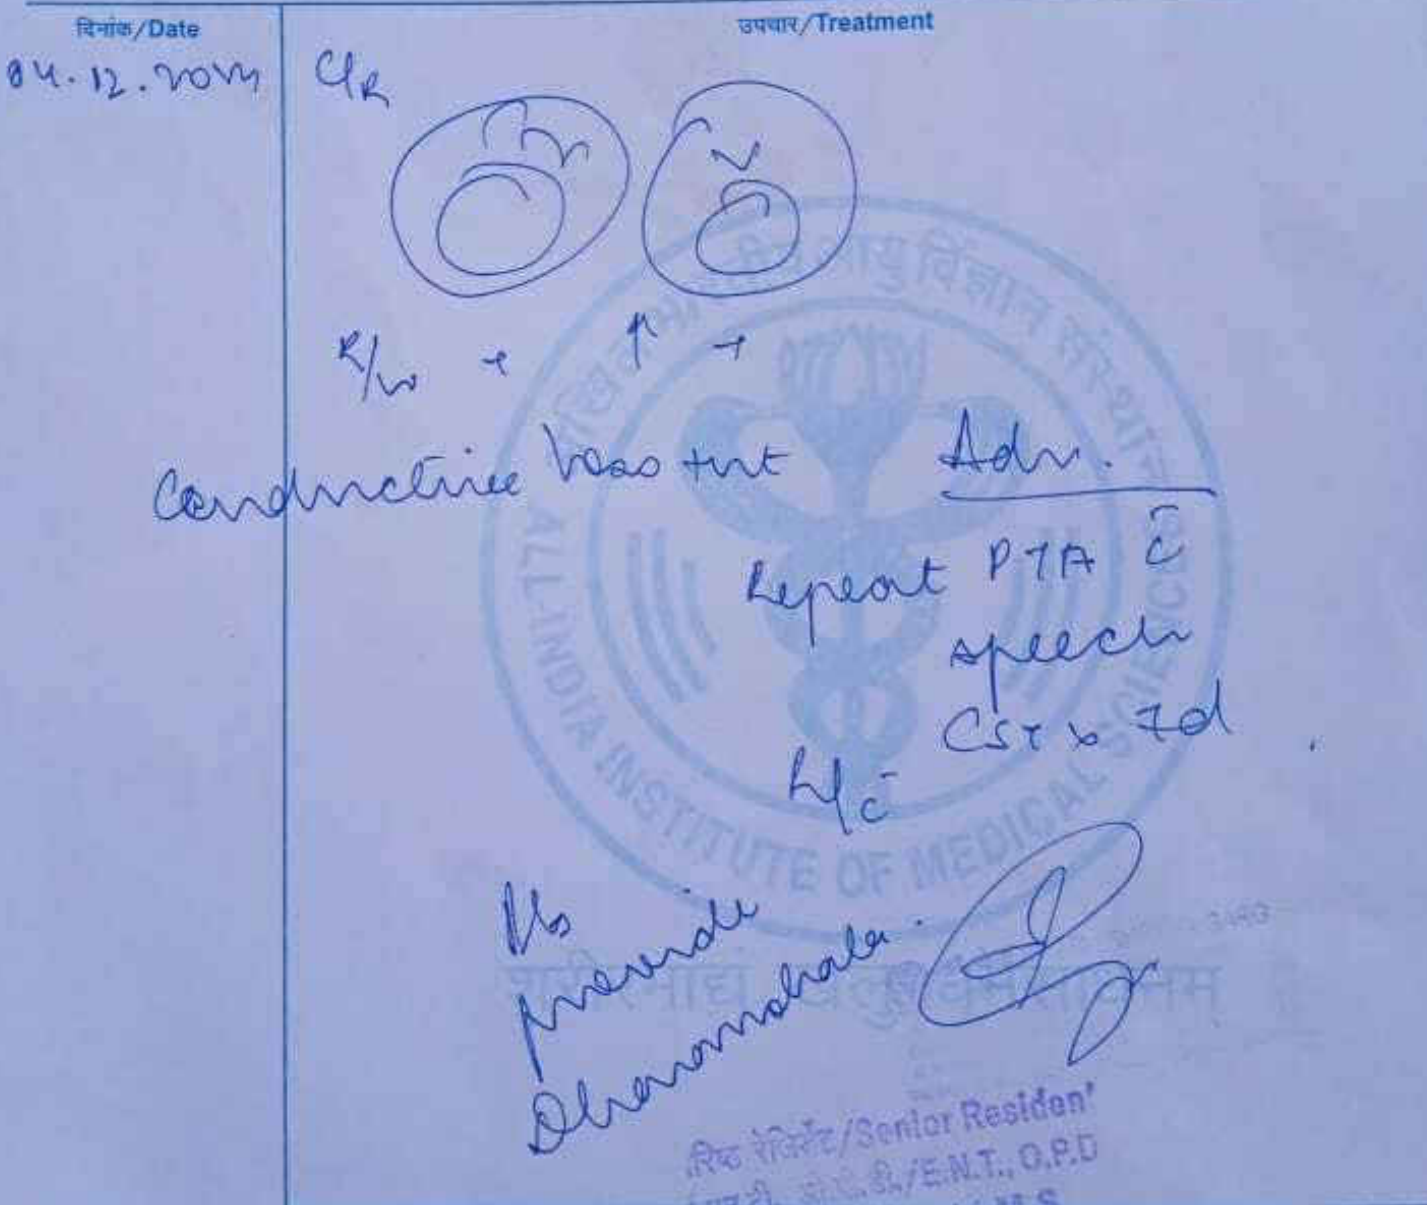 दिनांक/Date
उपचार/Treatment
04.12.
R/w - ↑ -
Conductive loss
Adv.
Repeat PTA c̄
speech
CST x 7d
R/c̄
provide
Dharamshala.
ALL INDIA INSTITUTE OF MEDICAL SCIENCES
शरीरमाद्यं खलु धर्मसाधनम्
रेजिडेंट/Senior Resident
/E.N.T., O.P.D